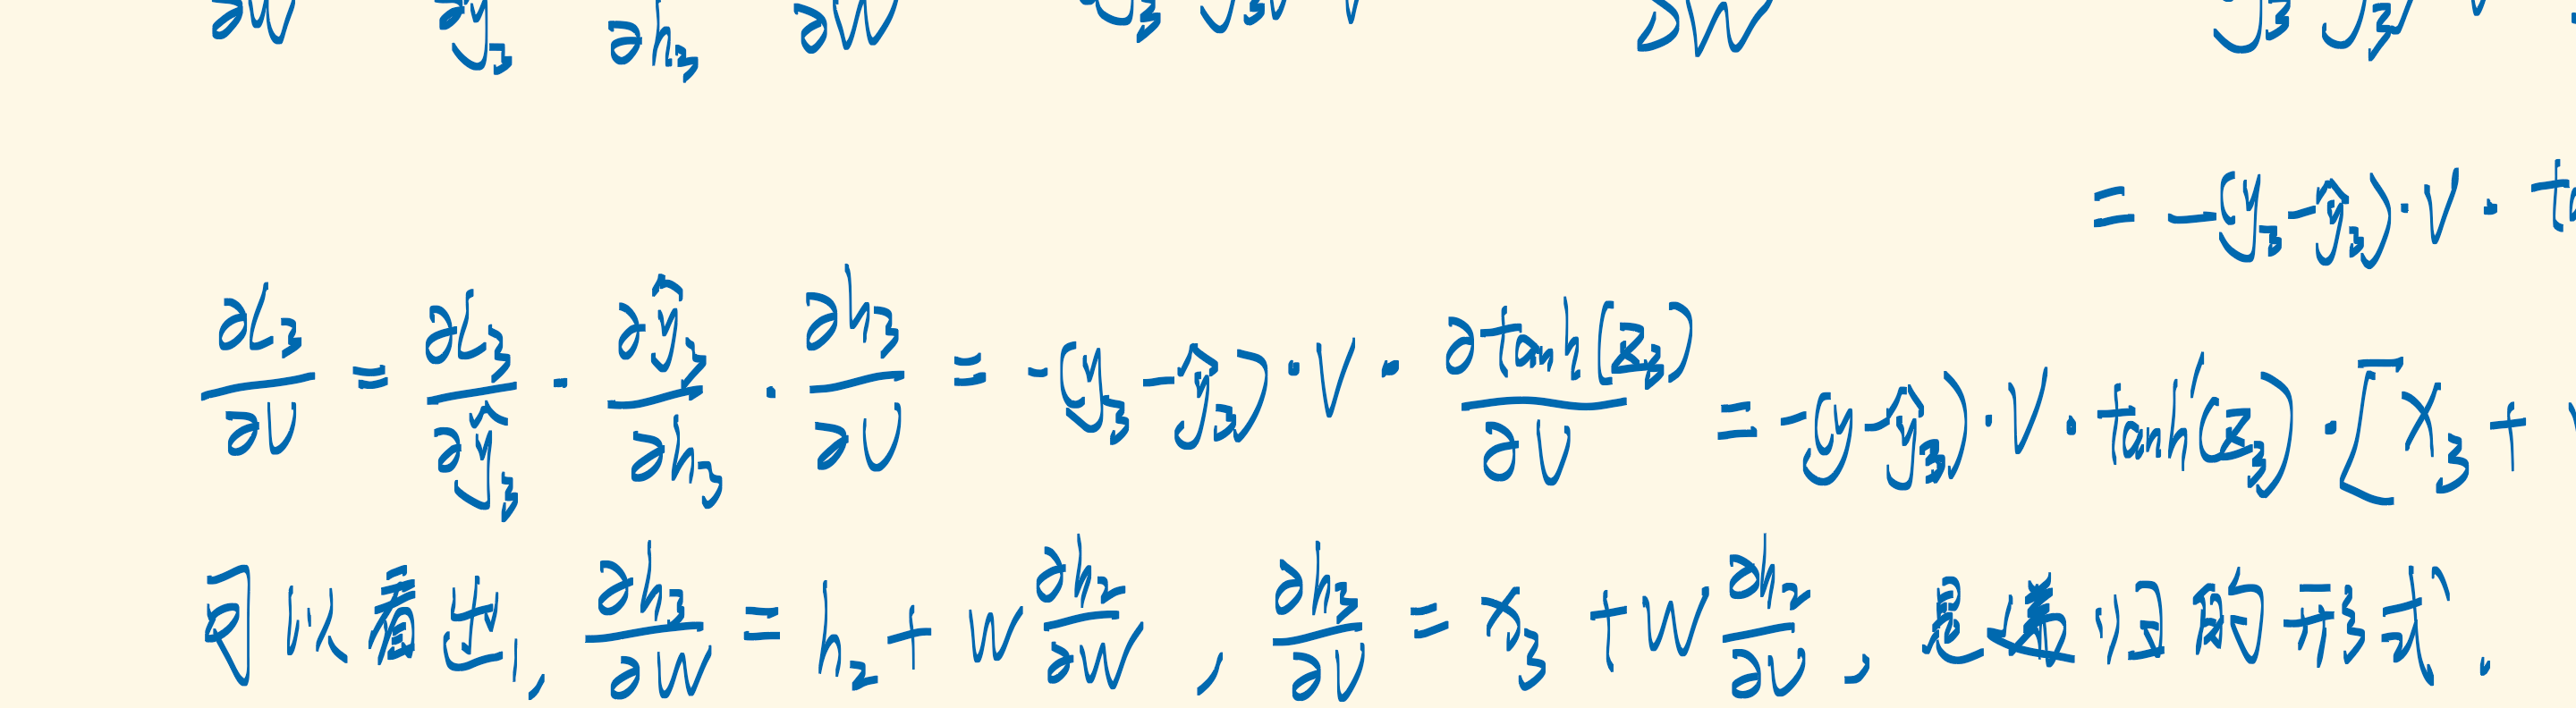 ∂W ∂ŷ₃ ∂h₃ ∂W ∂W
= -(y₃-ŷ₃)·V·
∂L₃/∂U = ∂L₃/∂ŷ₃ · ∂ŷ₃/∂h₃ · ∂h₃/∂U = -(y₃-ŷ₃)·V·∂tanh(z₃)/∂U = -(y-ŷ₃)·V·tanh'(z₃)·[x₃+
可以看出, ∂h₃/∂W = h₂+W ∂h₂/∂W , ∂h₃/∂U = x₃+W ∂h₂/∂U , 是递归的形式.